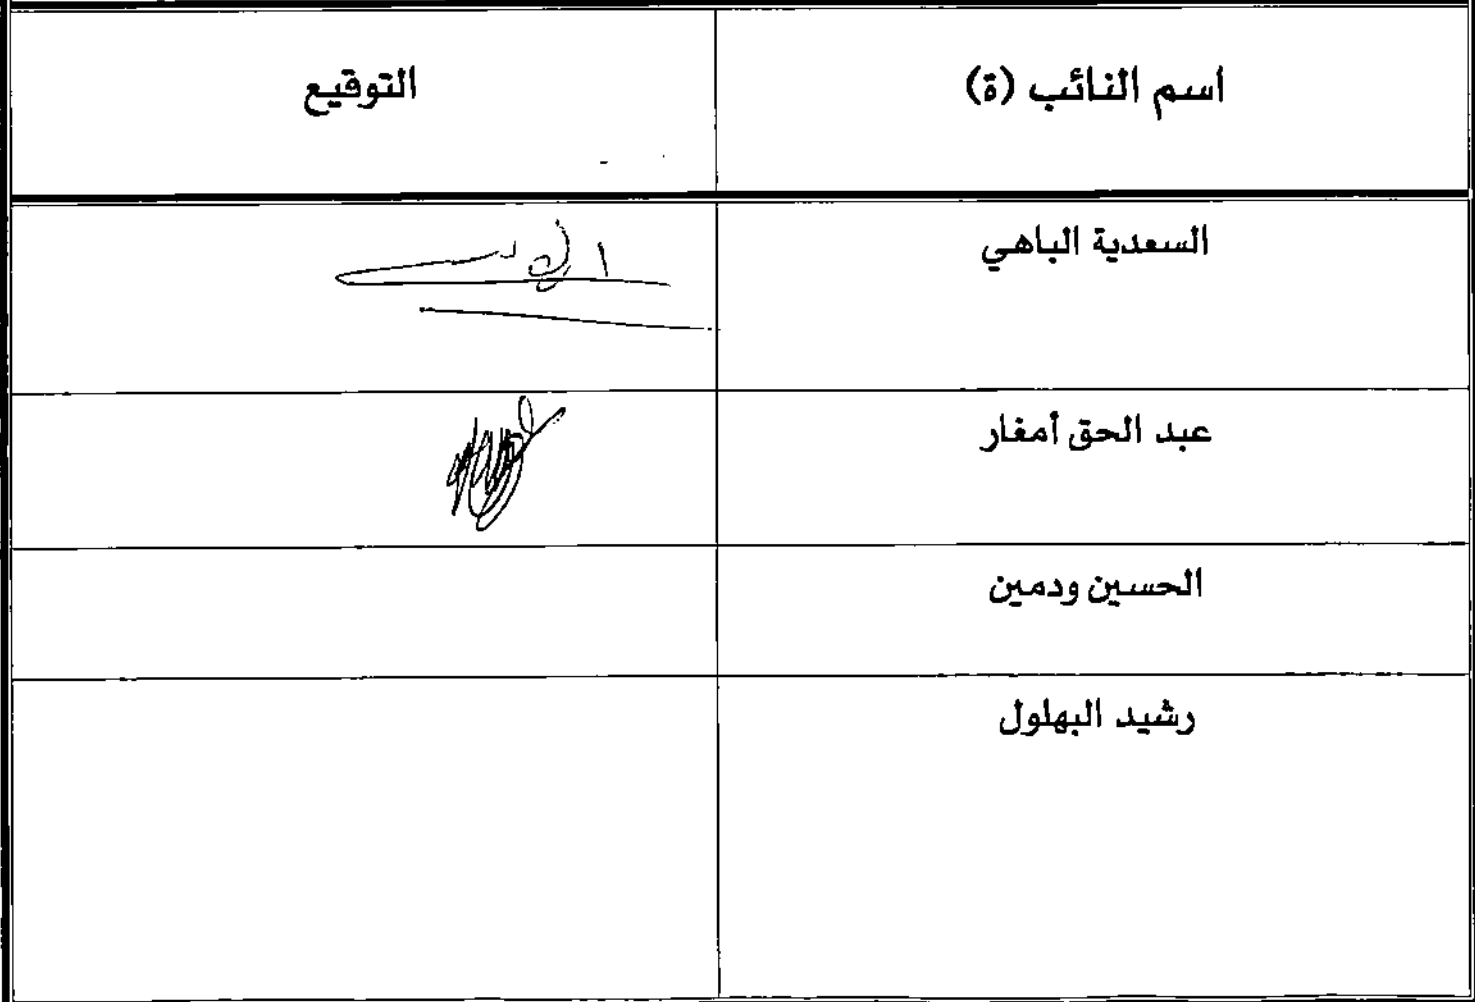 اسم النائب (ة)
التوقيع
السعدية الباهي
عبد الحق أمغار
الحسين ودمين
رشيد البهلول